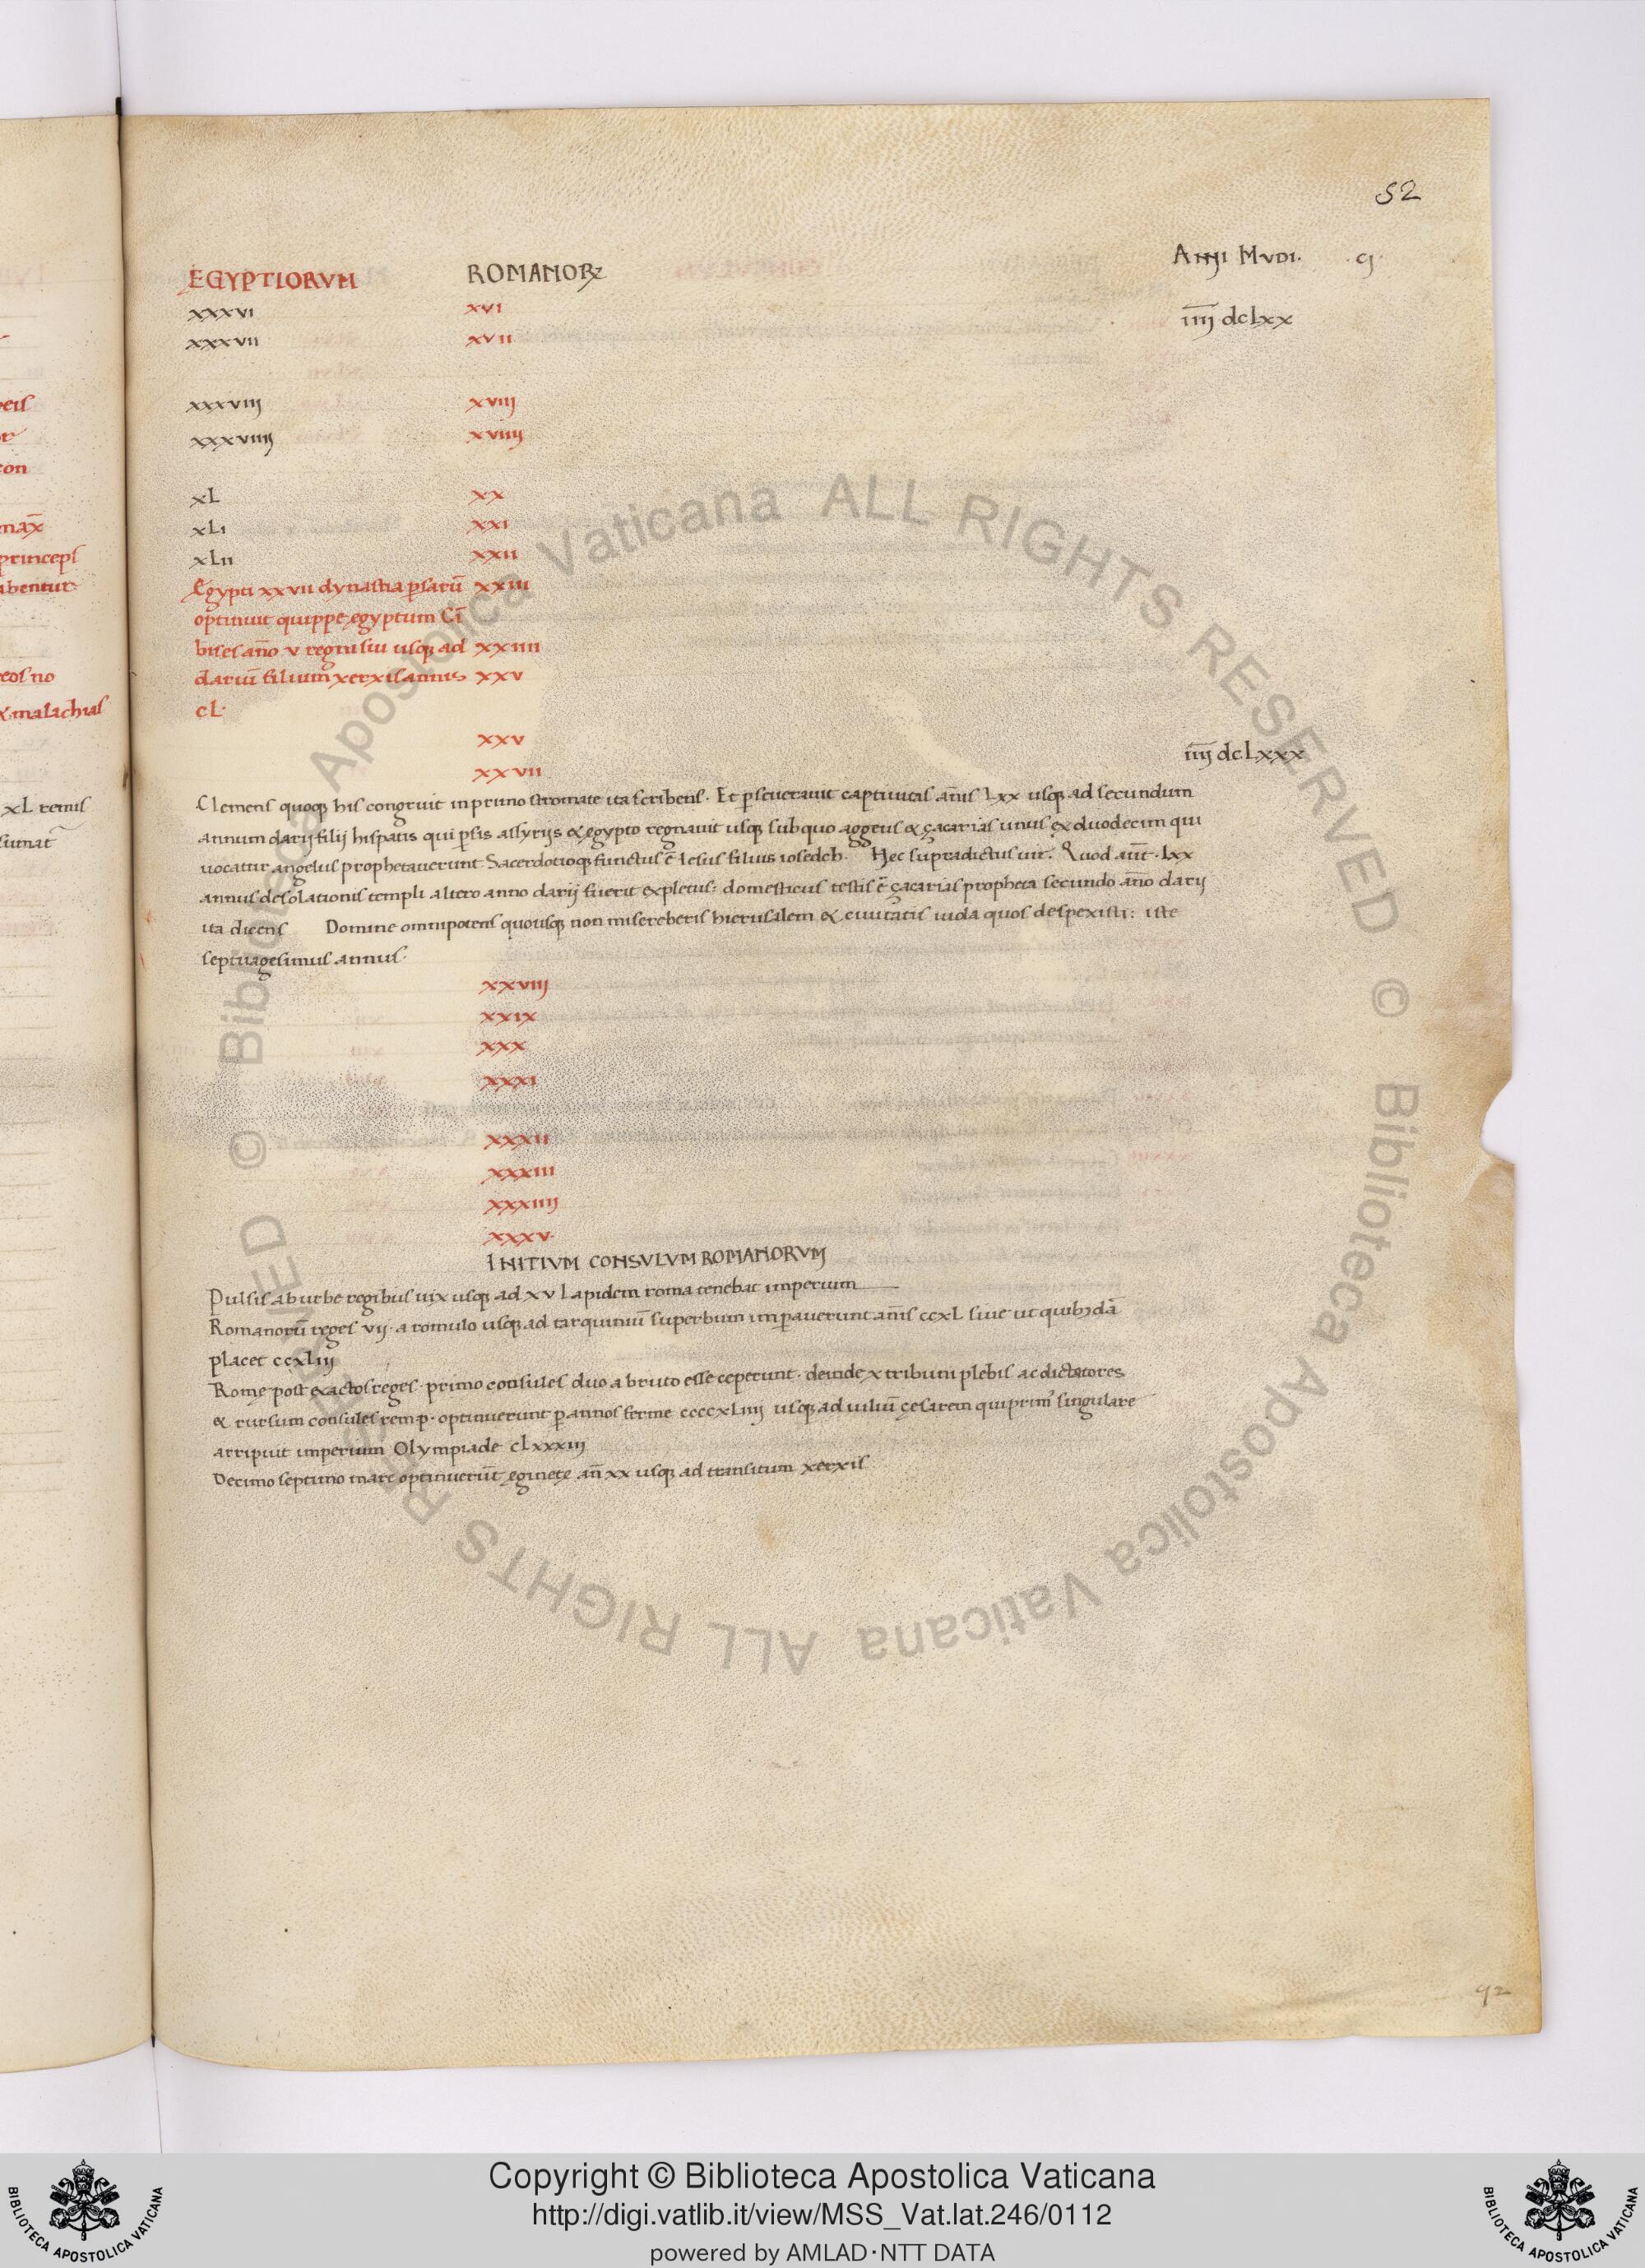 52
EGYPTIORVM ROMANORꝜ ANNI MVDI. cj
xxxvi xvi iiij dclxx
xxxvii xvii
xxxviij xviij
xxxviiij xviiij
xL xx
xLi xxi
xLii xxii
Egypti xxvii dynastia ꝑsarū xxiii
optinuit quippe egyptum Cī
bises año v regni sui usqꝫ ad xxiiii
dariū filium xerxis annis xxv
cL·
xxv iiij dcLxxx
xxvii
Clemens quoqꝫ his congruit in primo stromate ita scribens. Et ꝑseuerauit captiuitas añis Lxx usqꝫ ad secundum
annum darij filij hispatis qui ꝑsis assyrijs & egypto regnauit usqꝫ sub quo aggeus & çacarias unus ex duodecim qui
uocatur angelus prophetauerunt. Sacerdotioqꝫ functus ē Iesus filius iosedech. Hec supradictus uir. Quod aūt .lxx
annus desolationis templi altero anno darij fuerit expletus: domesticus testis ē çacarias propheta secundo año darij
ita dicens Domine omnipotens quousqꝫ non misereberis hierusalem & ciuitatis iuda quos despexisti: iste
septuagesimus annus.
xxviij
xxix
xxx
xxxi
xxxii
xxxiii
xxxiiij
xxxv.
INITIVM CONSVLVM ROMANORVM
Pulsis ab urbe regibus uix usqꝫ ad xv lapidem roma tenebat imperium
Romanorū reges vij. a romulo usqꝫ ad tarquiniū superbum imꝑauerunt añis ccxL siue ut quibꝫdā
placet ccxliij
Romę post exactos reges. primo consules duo a bruto esse ceperunt. deinde x tribuni plebis ac dictatores
& rursum consules rem p. optinuerunt ꝑ annos ferme ccccxLiiij usqꝫ ad iuliū çesarem qui prim' singulare
arripuit imperium Olympiade clxxxiij
Decimo septimo mare optinuerūt eginetę añ xx usqꝫ ad transitum xerxis
92
eis
con
max̄
princeps
abentur
eos no
x. malachias
xL remis
Copyright © Biblioteca Apostolica Vaticana
http://digi.vatlib.it/view/MSS_Vat.lat.246/0112
powered by AMLAD·NTT DATA
BIBLIOTECA APOSTOLICA VATICANA
BIBLIOTECA APOSTOLICA VATICANA
© Biblioteca Apostolica Vaticana ALL RIGHTS RESERVED
© Biblioteca Apostolica Vaticana ALL RIGHTS RESERVED